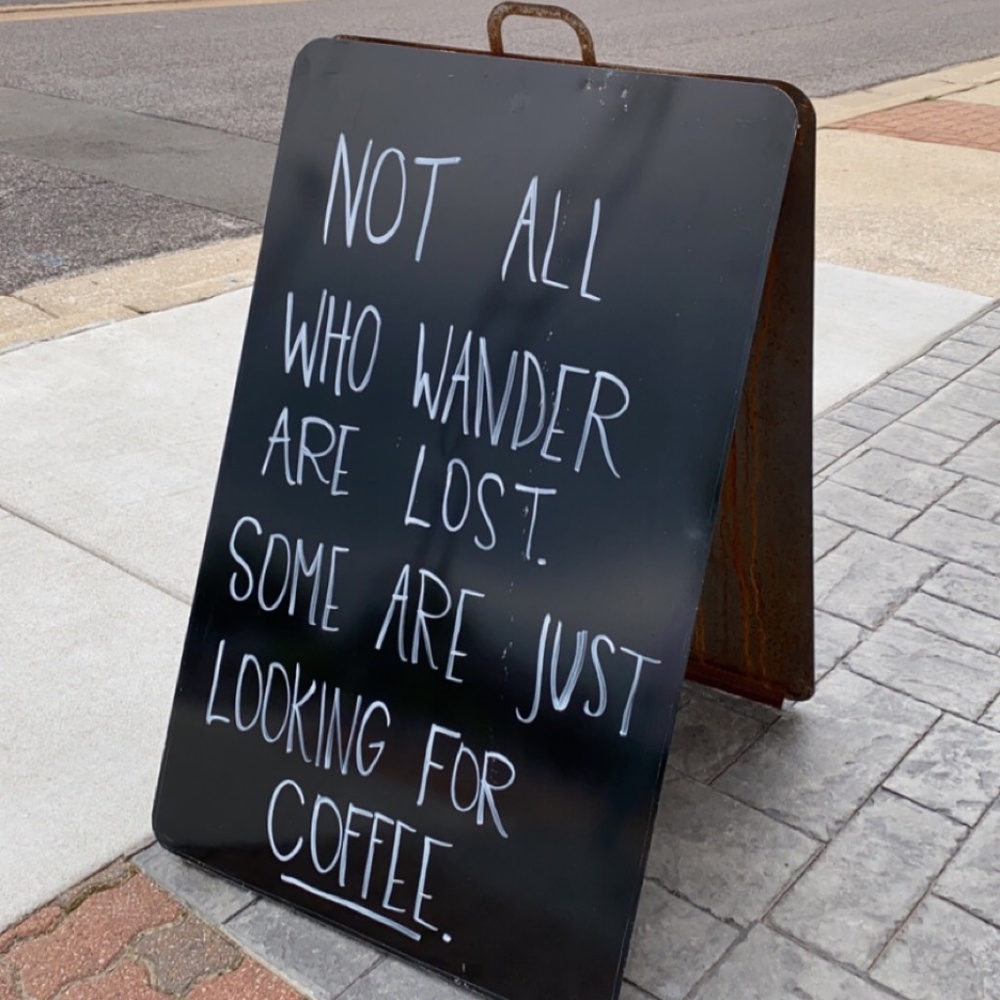 NOT ALL
WHO WANDER
ARE LOST.
SOME ARE JUST
LOOKING FOR
COFFEE.